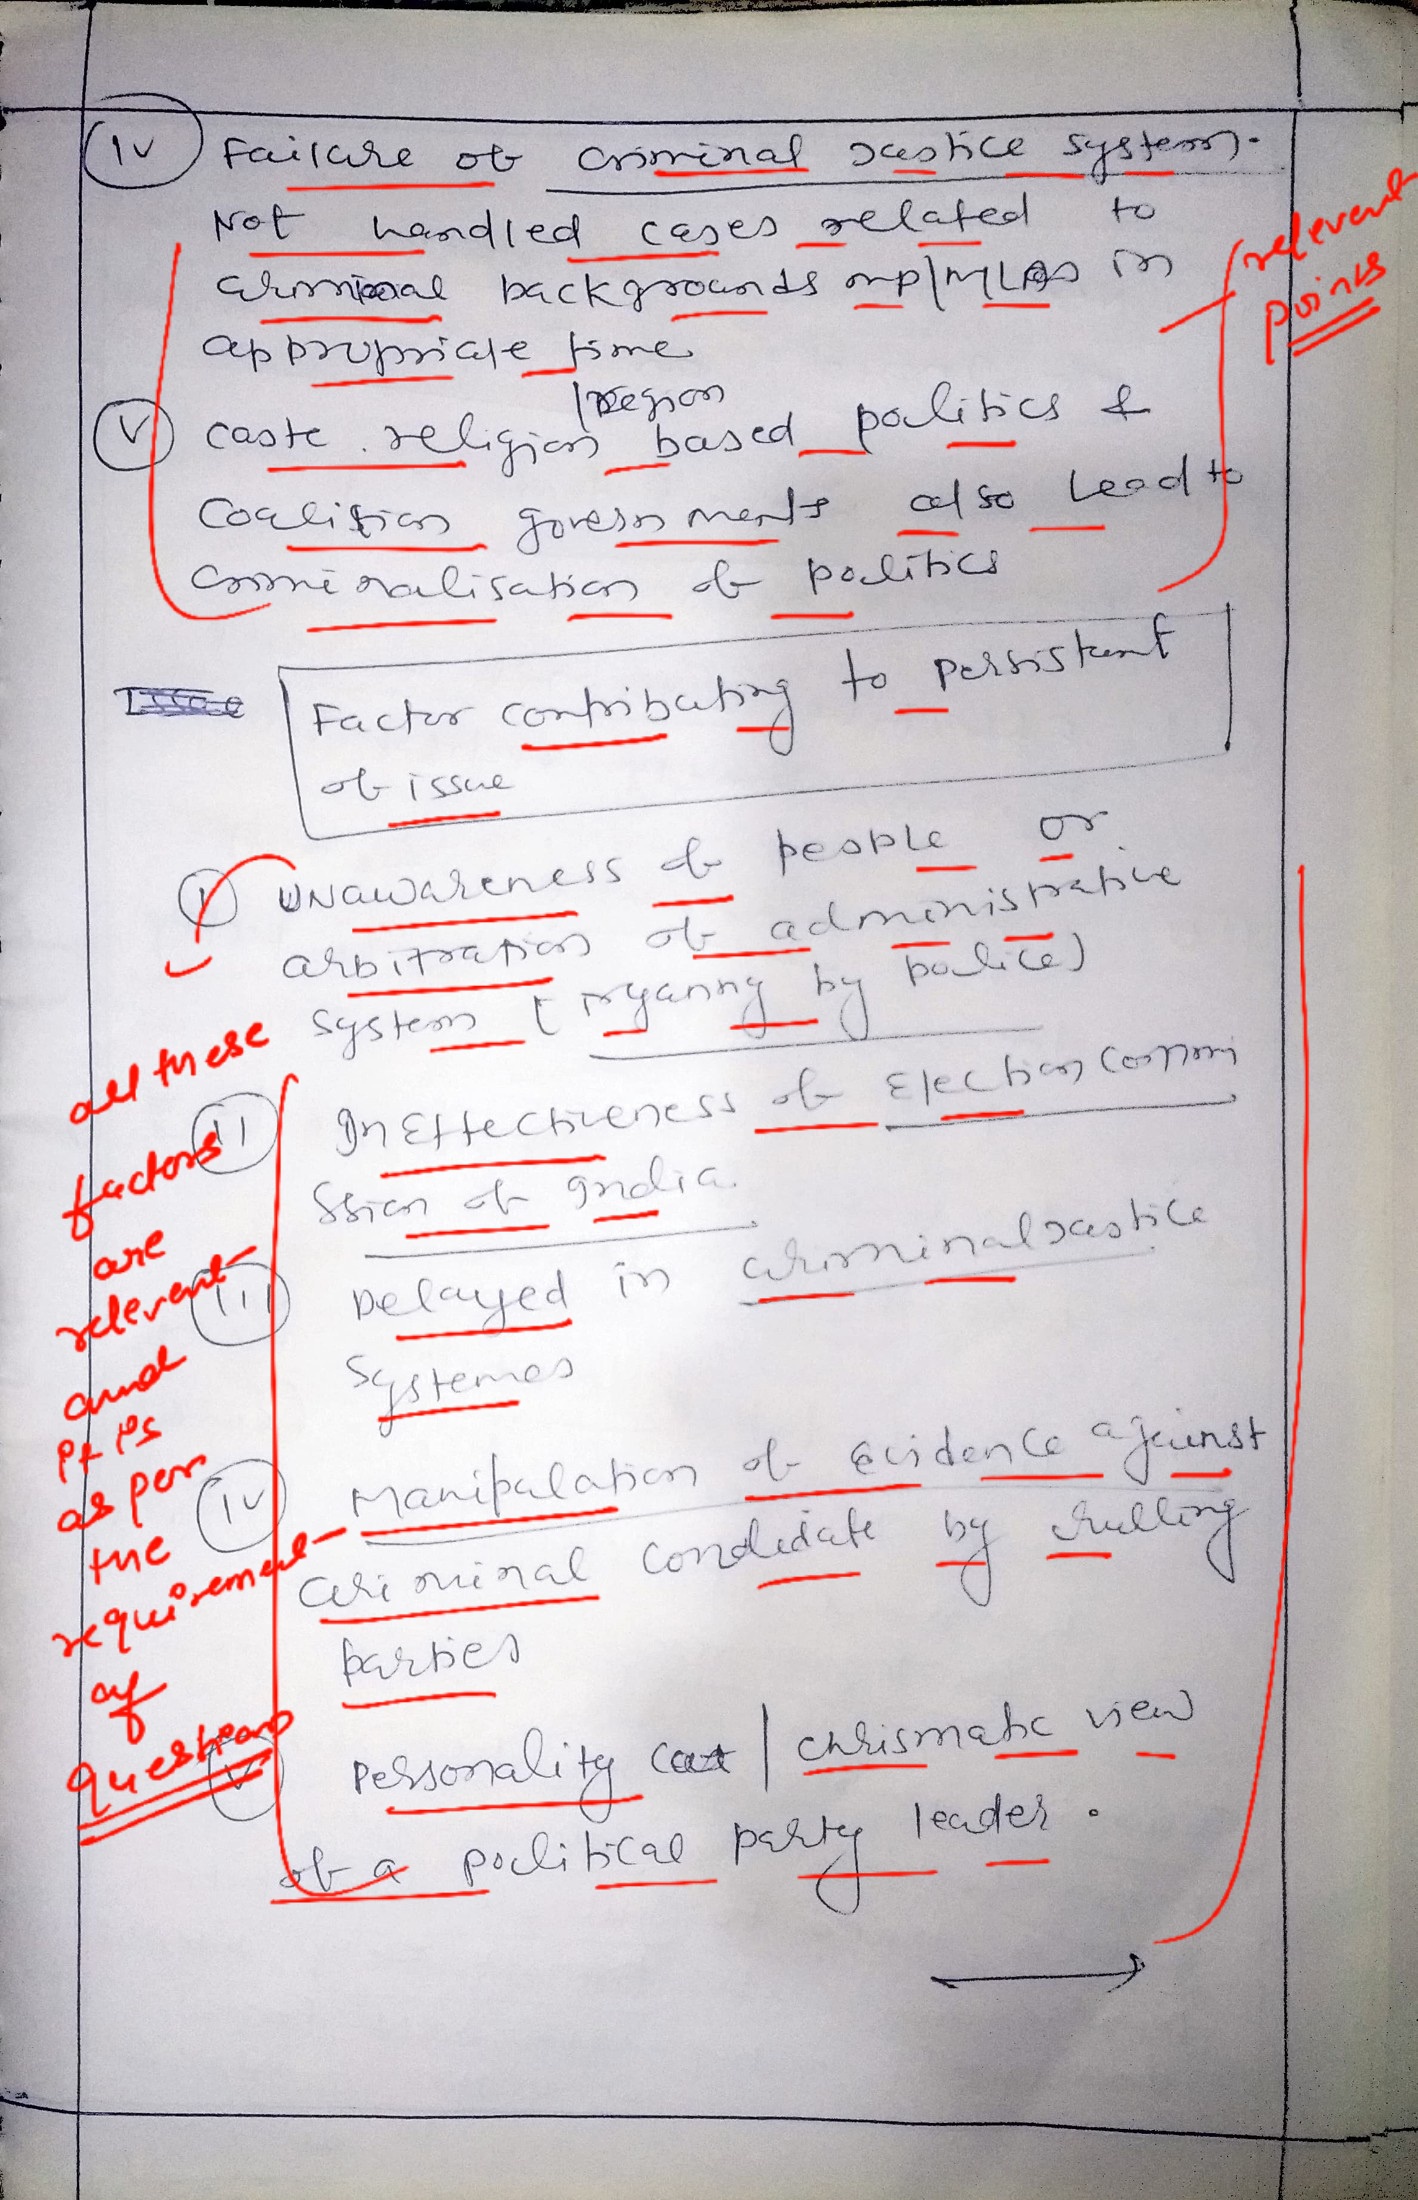 IV Failure of criminal Justice system.
Not handled cases related to
criminal backgrounds MP/MLAs in
appropriate time
/Region
V caste. religion based politics &
coalition governments also lead to
criminalisation of politics
Factor contributing to persistent
of issue
I UNawareness of people or
arbitration of administrative
system ( by police)
II InEffectiveness of Election Commi
ssion of India.
III Delayed in criminal Justice
Systemes
IV Manipulation of evidence against
criminal condidate by rulling
parties
V Personality cut | chrismatic view
of a political party leader.
relevent
points
all these
factors
are
relevent
and
it is
as per
the
requirement
of
question